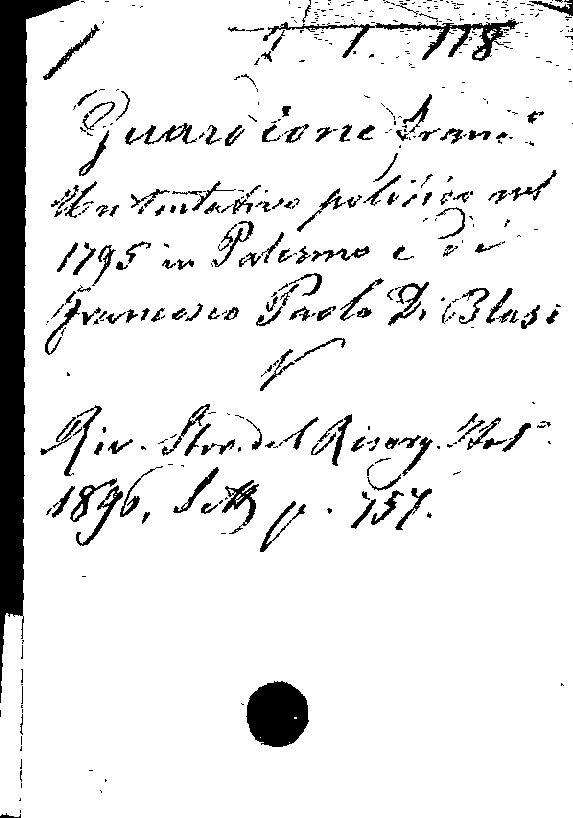 1 2. 1. 118
Guardione Franc.º
Un tentativo politico nel
1795 in Palermo e di
Francesco Paolo Di Blasi
Riv. Stor. del Risorg. Ital.º
1896, Sett p. 757.